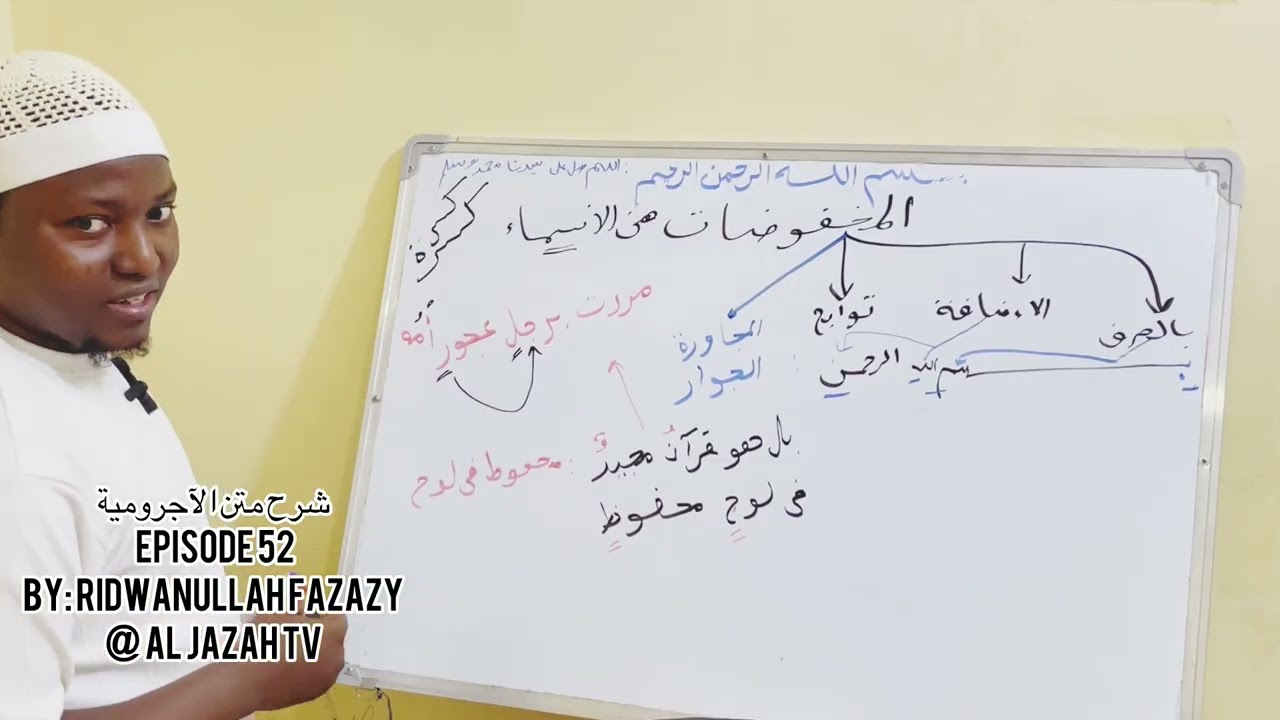 بسم الله الرحمن الرحيم
اللهم صل على سيدنا محمد وسلم
المخفوضات من الاسماء
بالحرف
الاضافة
توابع
المجاورة
الجوار
بسم الله الرحمن :
مررت برجلٍ عجوزٍ أمه
بل هو قرآنٌ مجيدٌ : محفوظ في لوح
في لوحٍ محفوظٍ
شرح متن الآجرومية
EPISODE 52
BY: RIDWANULLAH FAZAZY
@ AL JAZAH TV